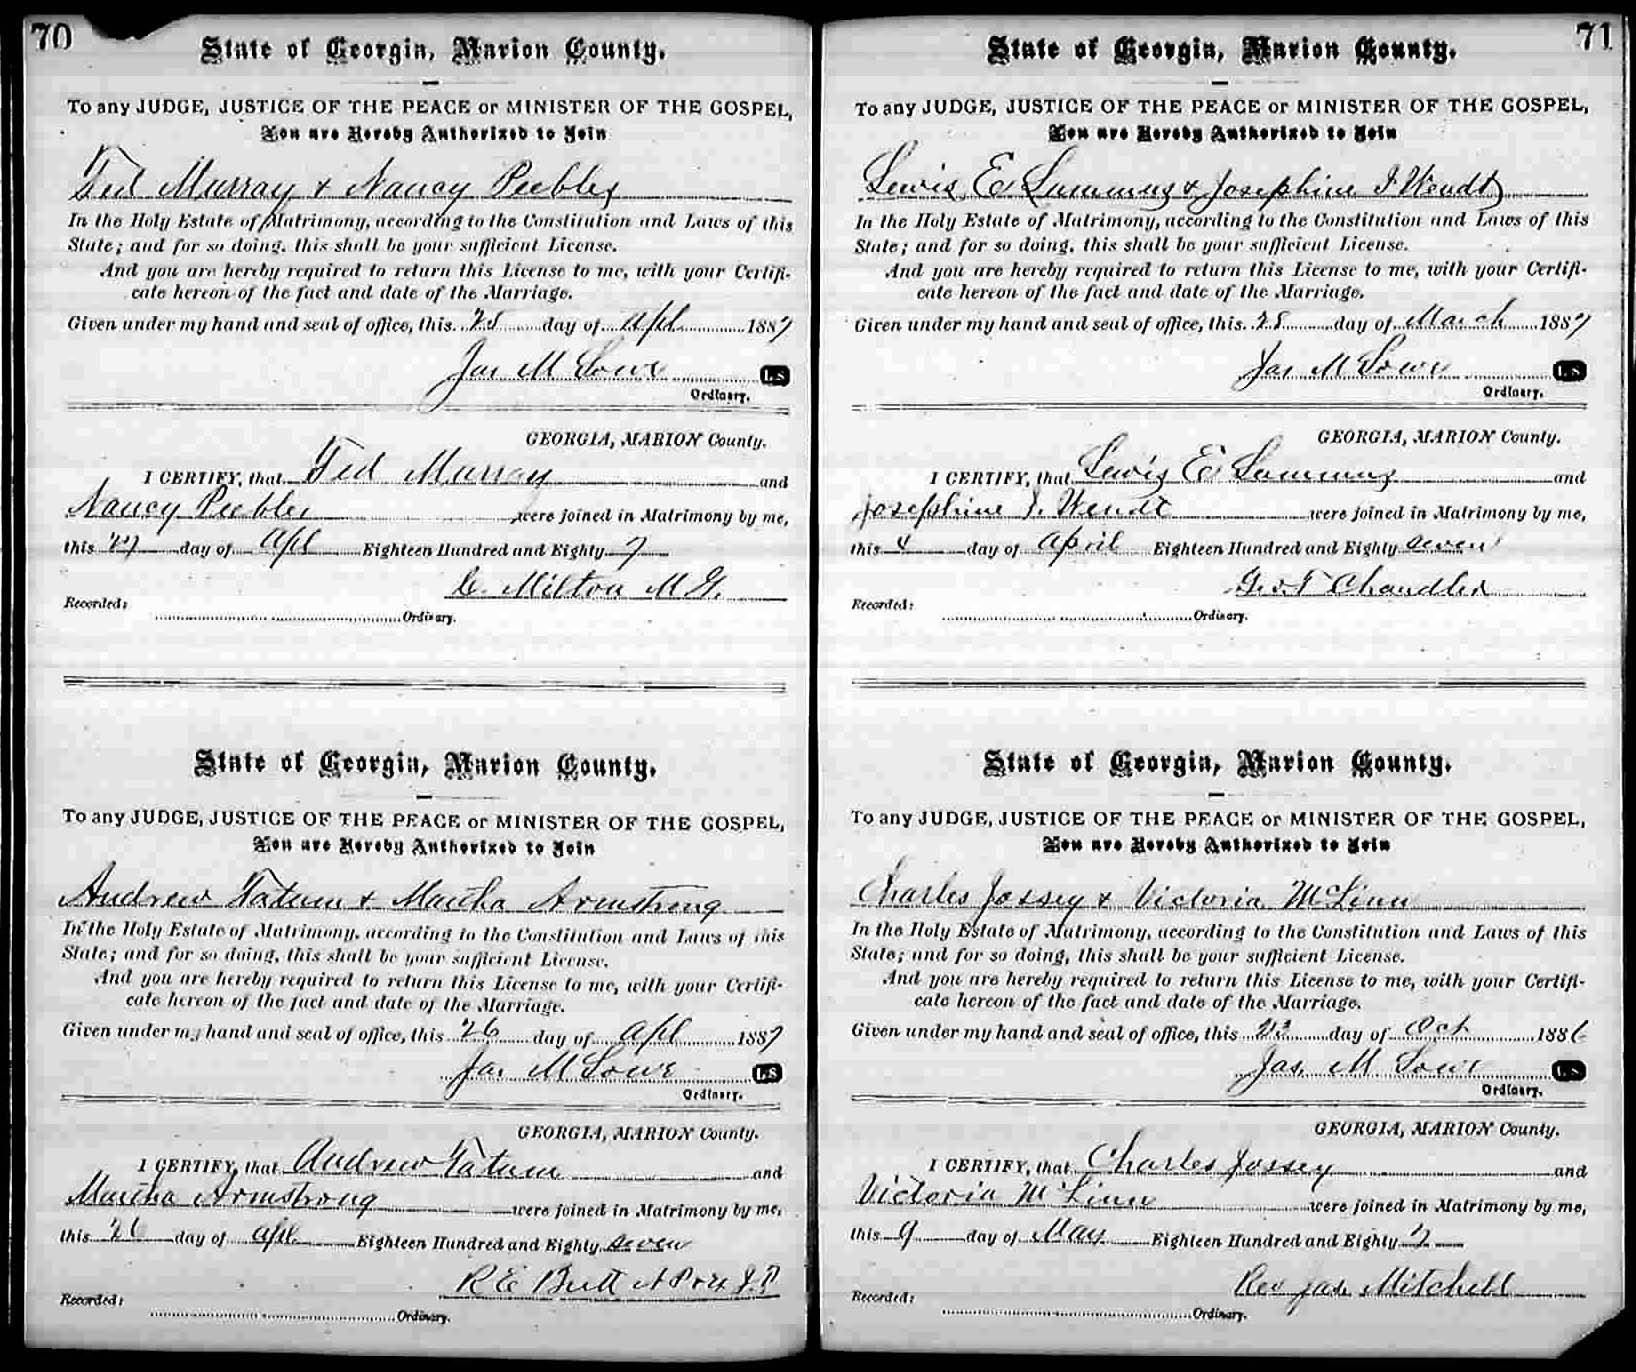 70
State of Georgia, Marion County.
To any JUDGE, JUSTICE OF THE PEACE or MINISTER OF THE GOSPEL,
You are Hereby Authorized to Join
Ted Murray & Nancy Peebles
In the Holy Estate of Matrimony, according to the Constitution and Laws of this
State; and for so doing, this shall be your sufficient License.
And you are hereby required to return this License to me, with your Certifi-
cate hereon of the fact and date of the Marriage.
Given under my hand and seal of office, this 25 day of Apl 1887
Jas M Lowe L S
Ordinary.
GEORGIA, MARION County.
I CERTIFY, that Ted Murray and
Nancy Peebles were joined in Matrimony by me,
this 27 day of Apl Eighteen Hundred and Eighty 7
C. Milton M.G.
Recorded:
Ordinary.
State of Georgia, Marion County.
To any JUDGE, JUSTICE OF THE PEACE or MINISTER OF THE GOSPEL,
You are Hereby Authorized to Join
Andrew Tatum & Martha Armstrong
In the Holy Estate of Matrimony, according to the Constitution and Laws of this
State; and for so doing, this shall be your sufficient License.
And you are hereby required to return this License to me, with your Certifi-
cate hereon of the fact and date of the Marriage.
Given under my hand and seal of office, this 26 day of Apl 1887
Jas M Lowe L S
Ordinary.
GEORGIA, MARION County.
I CERTIFY, that Andrew Tatum and
Martha Armstrong were joined in Matrimony by me,
this 26 day of Apl Eighteen Hundred and Eighty seven
R E Butt J.P.
Recorded:
Ordinary.
71
State of Georgia, Marion County.
To any JUDGE, JUSTICE OF THE PEACE or MINISTER OF THE GOSPEL,
You are Hereby Authorized to Join
Lewis E Lummus & Josephine J Wendt
In the Holy Estate of Matrimony, according to the Constitution and Laws of this
State; and for so doing, this shall be your sufficient License.
And you are hereby required to return this License to me, with your Certifi-
cate hereon of the fact and date of the Marriage.
Given under my hand and seal of office, this 28 day of March 1887
Jas M Lowe L S
Ordinary.
GEORGIA, MARION County.
I CERTIFY, that Lewis E Lummus and
Josephine J. Wendt were joined in Matrimony by me,
this 4 day of April Eighteen Hundred and Eighty seven
Geo T Chandler
Recorded:
Ordinary.
State of Georgia, Marion County.
To any JUDGE, JUSTICE OF THE PEACE or MINISTER OF THE GOSPEL,
You are Hereby Authorized to Join
Charles Jossey & Victoria McLinn
In the Holy Estate of Matrimony, according to the Constitution and Laws of this
State; and for so doing, this shall be your sufficient License.
And you are hereby required to return this License to me, with your Certifi-
cate hereon of the fact and date of the Marriage.
Given under my hand and seal of office, this 23 day of Oct 1886
Jas. M Lowe L S
Ordinary.
GEORGIA, MARION County.
I CERTIFY, that Charles Jossey and
Victoria McLinn were joined in Matrimony by me,
this 9 day of May Eighteen Hundred and Eighty 7
Rev Jas. Mitchell
Recorded:
Ordinary.